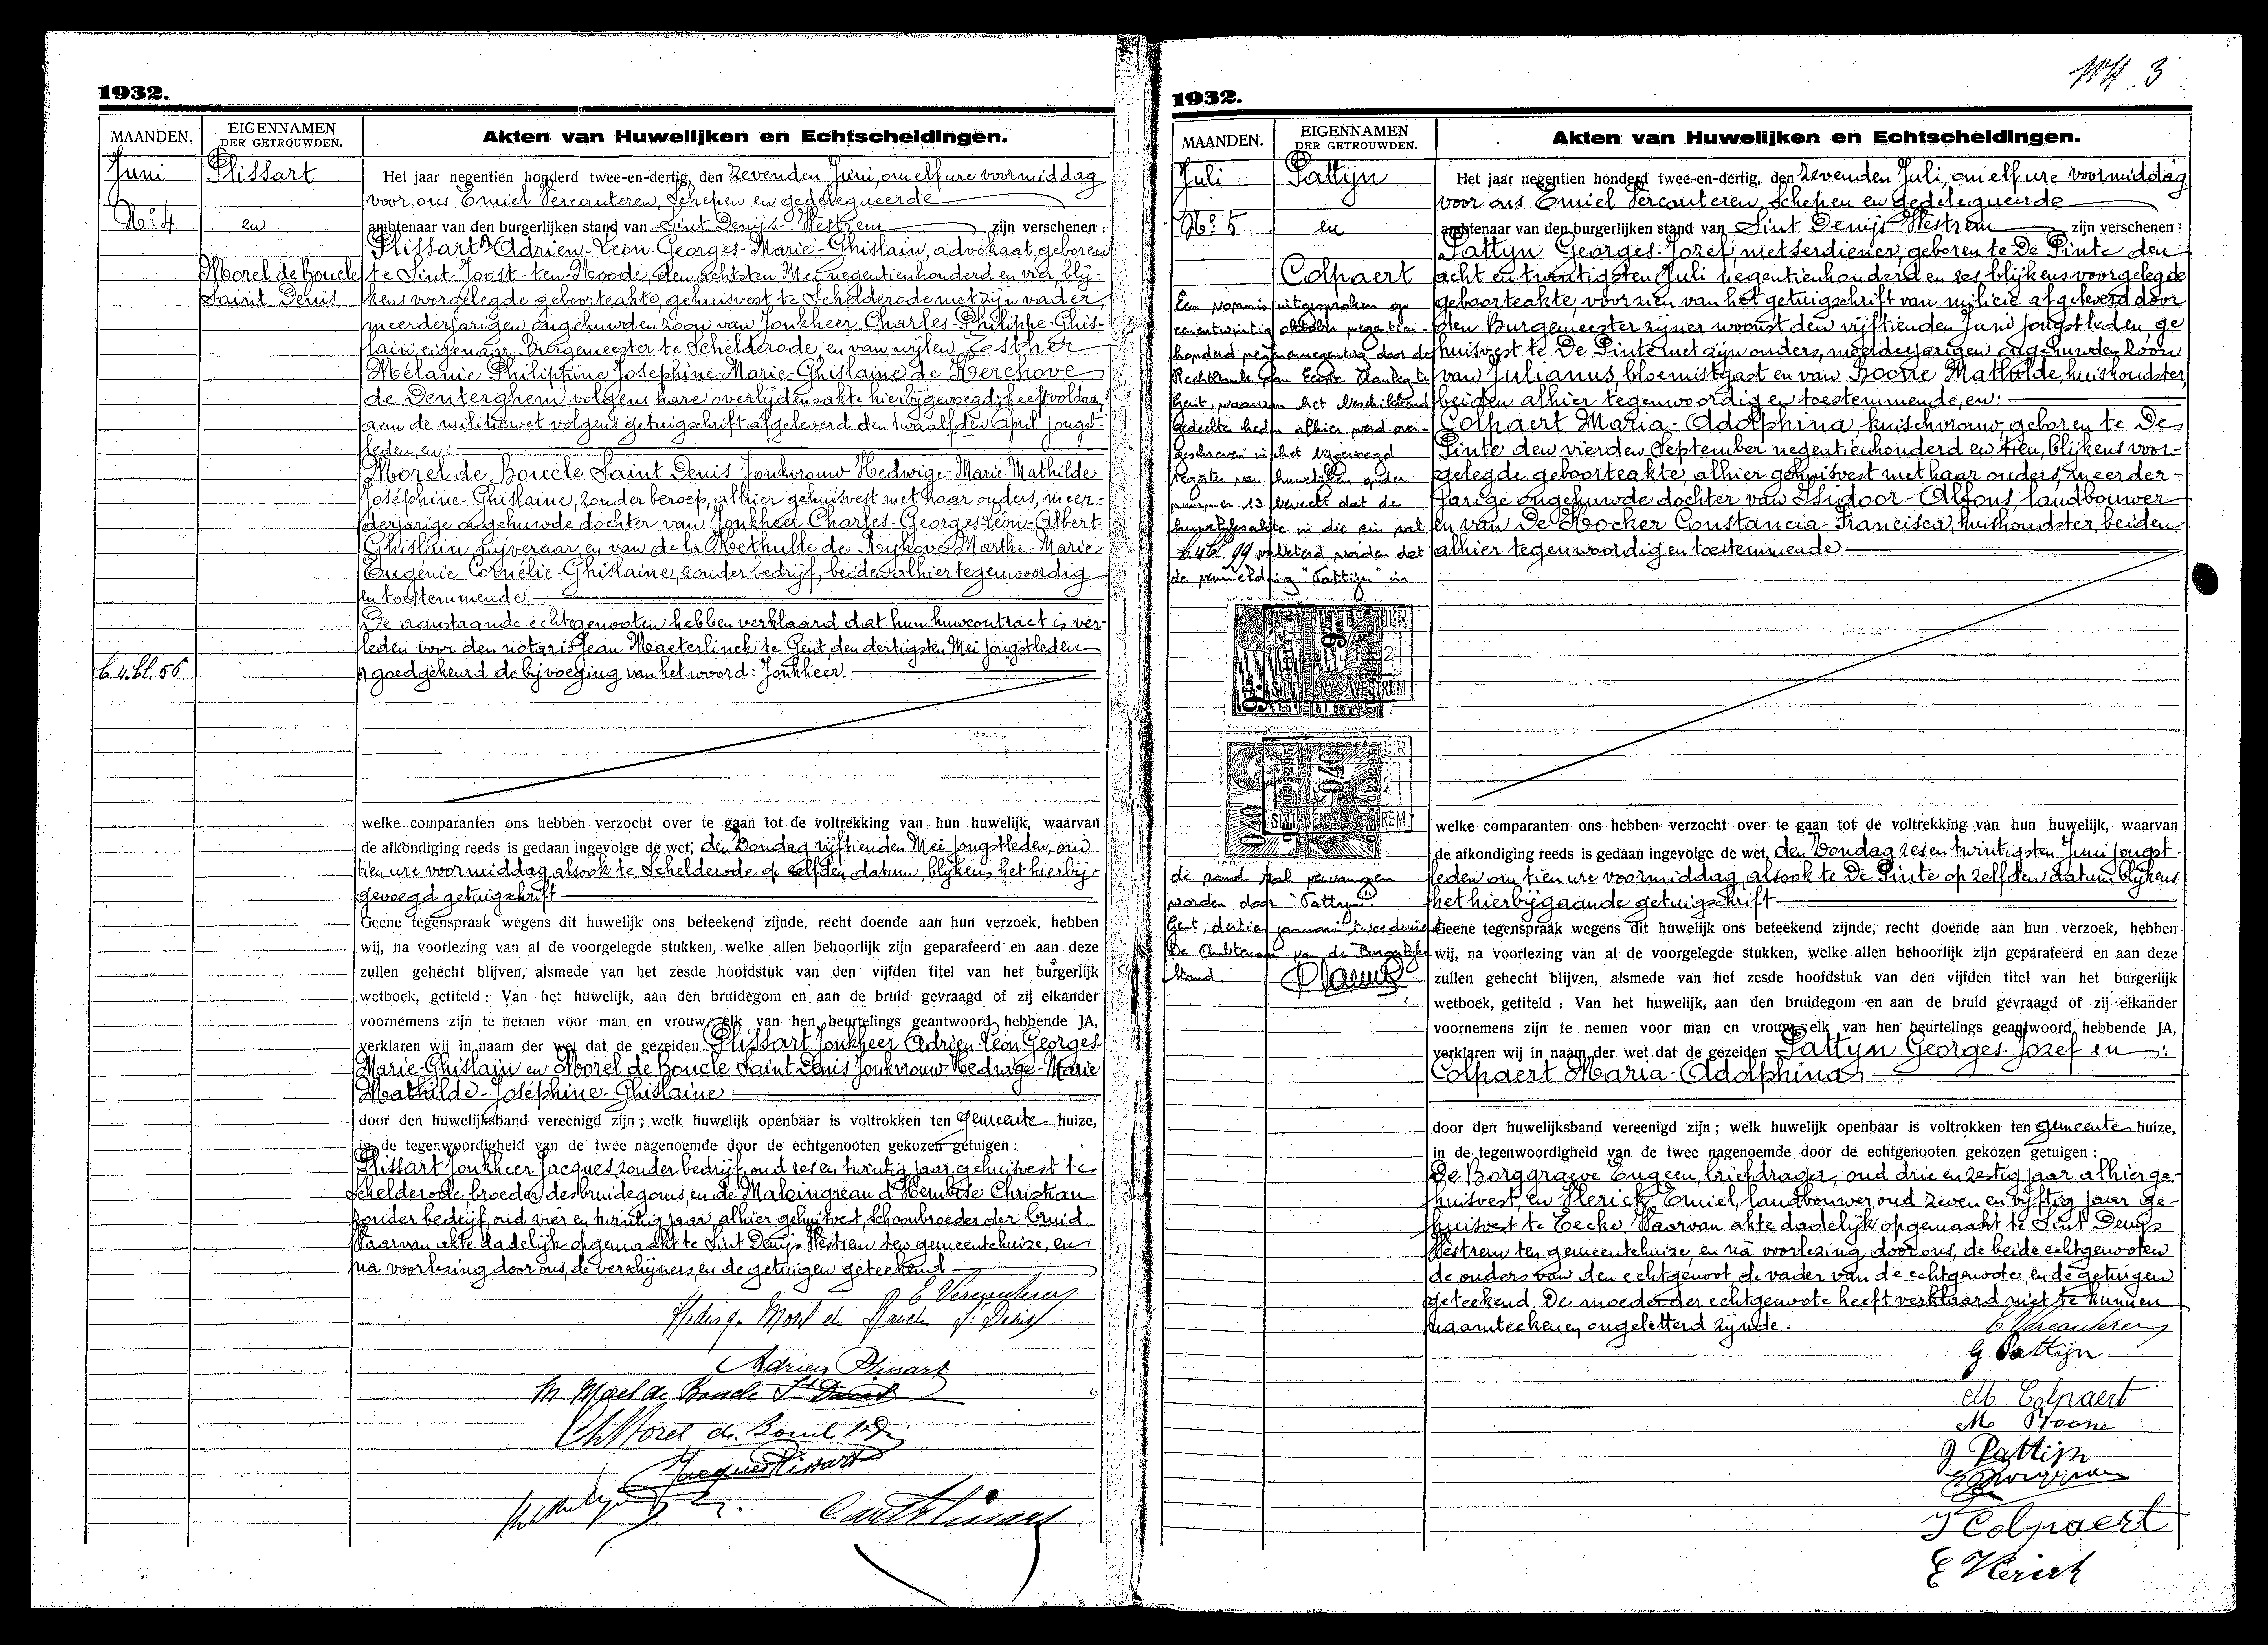 1932.
MAANDEN.
EIGENNAMEN
DER GETROUWDEN.
Akten van Huwelijken en Echtscheidingen.
Juni
Plissart
No. 4
en
Morel de Boucle
Saint Denis
b. 4. bl. 56
Het jaar negentien honderd twee-en-dertig, den zevenden Juni, om elf ure voormiddag
voor ons Emiel Vercauteren, Schepen en gedelegueerde
ambtenaar van den burgerlijken stand van Sint Denijs-Westrem zijn verschenen :
Plissart Adrien-Léon-Georges-Marie-Ghislain, advokaat, geboren
te Sint-Joost-ten-Noode, den achtsten Mei negentienhonderd en vier, blij-
kens voorgelegde geboorteakte, gehuisvest te Schelderode met zijn vader,
meerderjarigen ongehuwden zoon van Jonkheer Charles-Philippe-Ghis-
lain eigenaar, Burgemeester te Schelderode en van wijlen Esther
Mélanie Philippine Josephine-Marie-Ghislaine de Kerchove
de Denterghem volgens hare overlijdensakte hierbijgevoegd; heeft voldaan
aan de militiewet volgens getuigschrift afgeleverd den twaalfden April jongst-
leden, en:
Morel de Boucle Saint Denis Jonkvrouw Hedwige-Marie-Mathilde
Joséphine-Ghislaine, zonder beroep, alhier gehuisvest met haar ouders, meer-
derjarige ongehuwde dochter van Jonkheer Charles-Georges-Léon-Albert-
Ghislain nijveraar en van de la Kethulle de Ryhove Marthe-Marie
Eugénie Cornélie-Ghislaine, zonder bedrijf, beiden alhier tegenwoordig
en toestemmende.
De aanstaande echtgenooten hebben verklaard dat hun huwcontract is ver-
leden voor den notaris Jean Maeterlinck te Gent, den dertigsten Mei jongstleden
goedgekeurd de bijvoeging van het woord: Jonkheer.
welke comparanten ons hebben verzocht over te gaan tot de voltrekking van hun huwelijk, waarvan
de afkondiging reeds is gedaan ingevolge de wet, den Zondag vijftienden Mei jongstleden, om
tien ure voormiddag alsook te Schelderode op zelfden datum, blijkens het hierbij-
gevoegd getuigschrift
Geene tegenspraak wegens dit huwelijk ons beteekend zijnde, recht doende aan hun verzoek, hebben
wij, na voorlezing van al de voorgelegde stukken, welke allen behoorlijk zijn geparafeerd en aan deze
zullen gehecht blijven, alsmede van het zesde hoofdstuk van den vijfden titel van het burgerlijk
wetboek, getiteld : Van het huwelijk, aan den bruidegom en aan de bruid gevraagd of zij elkander
voornemens zijn te nemen voor man en vrouw, elk van hen beurtelings geantwoord hebbende JA,
verklaren wij in naam der wet dat de gezeiden Plissart Jonkheer Adrien-Léon-Georges-
Marie-Ghislain en Morel de Boucle Saint Denis Jonkvrouw Hedwige-Marie
Mathilde-Joséphine-Ghislaine
door den huwelijksband vereenigd zijn ; welk huwelijk openbaar is voltrokken ten gemeente huize,
in de tegenwoordigheid van de twee nagenoemde door de echtgenooten gekozen getuigen :
Plissart Jonkheer Jacques, zonder bedrijf, oud zes en twintig jaar, gehuisvest te
Schelderode, broeder des bruidegoms, en de Maleingreau d'Hembise Christian
zonder bedrijf, oud vier en twintig jaar, alhier gehuisvest, schoonbroeder der bruid.
Waarvan akte dadelijk opgemaakt te Sint Denijs Westrem ten gemeentehuize, en
na voorlezing door ons, de verschijners, en de getuigen geteekend
E Vercauteren
Hedwige Morel de Boucle St Denis
Adrien Plissart
M Morel de Boucle St Denis
Ch Morel de Boucle St D
Jacques Plissart
Plissart
3
1932.
MAANDEN.
EIGENNAMEN
DER GETROUWDEN.
Akten van Huwelijken en Echtscheidingen.
Juli
Pattijn
No. 5
en
Colpaert
Een vonnis uitgesproken op
eenentwintig oktober negentien-
honderd negenennegentig door de
Rechtbank van Eerste Aanleg te
Gent, waarvan het beschikkend
gedeelte heden alhier werd over-
geschreven in het bijgevoegd
register van huwelijken onder
nummer 13 beveelt dat de
huwelijksakte in die zin zal
verbeterd worden dat
de vermelding "Pattijn" in
9 FR
SINT DENIJS WESTREM
0,40
de rand zal vervangen
worden door "Pattyn".
Gent, dertien januari tweeduizend
De Ambtenaar van de Burgerlijke
Stand,
Het jaar negentien honderd twee-en-dertig, den zevenden Juli, om elf ure voormiddag
voor ons Emiel Vercauteren, Schepen en gedelegueerde
ambtenaar van den burgerlijken stand van Sint Denijs Westrem zijn verschenen :
Pattyn Georges-Jozef, metserdiener, geboren te De Pinte den
acht en twintigsten Juli negentienhonderd en zes blijkens voorgelegde
geboorteakte, voorzien van het getuigschrift van milicie afgeleverd door
den Burgemeester zijner woonst den vijftienden Juni jongstleden, ge
huisvest te De Pinte met zijn ouders, meerderjarigen ongehuwden zoon
van Julianus, bloemistgast en van Boone Mathilde, huishoudster,
beiden alhier tegenwoordig en toestemmende, en:
Colpaert Maria-Adolphina, kuischvrouw, geboren te De
Pinte den vierden September negentienhonderd en tien, blijkens voor-
gelegde geboorteakte, alhier gehuisvest met haar ouders, meerder-
jarige ongehuwde dochter van Isidoor-Alfons, landbouwer
en van De Kocker Constancia-Francisca, huishoudster, beiden
alhier tegenwoordig en toestemmende
welke comparanten ons hebben verzocht over te gaan tot de voltrekking van hun huwelijk, waarvan
de afkondiging reeds is gedaan ingevolge de wet, den Zondag zes en twintigsten Juni jongst-
leden om tien ure voormiddag, alsook te De Pinte op zelfden datum blijkens
het hierbijgaande getuigschrift
Geene tegenspraak wegens dit huwelijk ons beteekend zijnde, recht doende aan hun verzoek, hebben
wij, na voorlezing van al de voorgelegde stukken, welke allen behoorlijk zijn geparafeerd en aan deze
zullen gehecht blijven, alsmede van het zesde hoofdstuk van den vijfden titel van het burgerlijk
wetboek, getiteld : Van het huwelijk, aan den bruidegom en aan de bruid gevraagd of zij elkander
voornemens zijn te nemen voor man en vrouw, elk van hen beurtelings geantwoord hebbende JA,
verklaren wij in naam der wet dat de gezeiden Pattyn Georges-Jozef en :
Colpaert Maria-Adolphina
door den huwelijksband vereenigd zijn ; welk huwelijk openbaar is voltrokken ten gemeente huize,
in de tegenwoordigheid van de twee nagenoemde door de echtgenooten gekozen getuigen :
De Borggraeve Eugeen, briefdrager, oud drie en zestig jaar alhier ge-
huisvest, en Herick Emiel, landbouwer, oud zeven en vijftig jaar ge-
huisvest te Eecke. Waarvan akte dadelijk opgemaakt te Sint Denijs
Westrem ten gemeentehuize, en na voorlezing door ons, de beide echtgenooten
de ouders van den echtgenoot, de vader van de echtgenoote, en de getuigen
geteekend De moeder der echtgenoote heeft verklaard niet te kunnen
naamteekenen, ongeletterd zijnde.
E Vercauteren
G Pattijn
M Colpaert
M Boone
J Pattijn
I Colpaert
E Herick